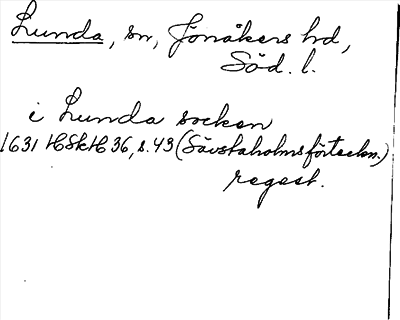 Lunda, sn, Jönåkers hd,
Söd. l.
i Lunda socken
1631 HSkH 36, s. 43 (Sävstaholmsförteckn.)
regest.